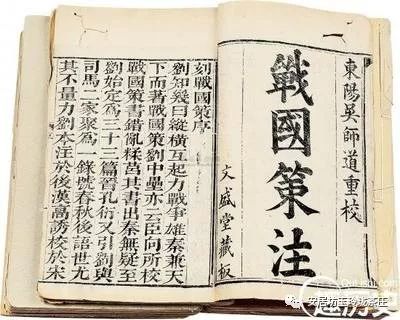 東陽吳師道重校
戰國策注
文盛堂藏板
刻戰國策序
劉知幾曰縱橫互起力戰爭雄秦兼天
下而著戰國策劉中壘亦云臣向所校
戰國策書錯亂糅莒其書出秦無疑至
劉始定為三十一篇晉孔衍又引劉與
司馬二家聚為一錄號春秋後語世尤
其不量力劉本注於後漢高誘校於宋